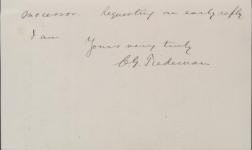 successor. Requesting an early reply
I am
Yours very truly
C.G. Tiedeman